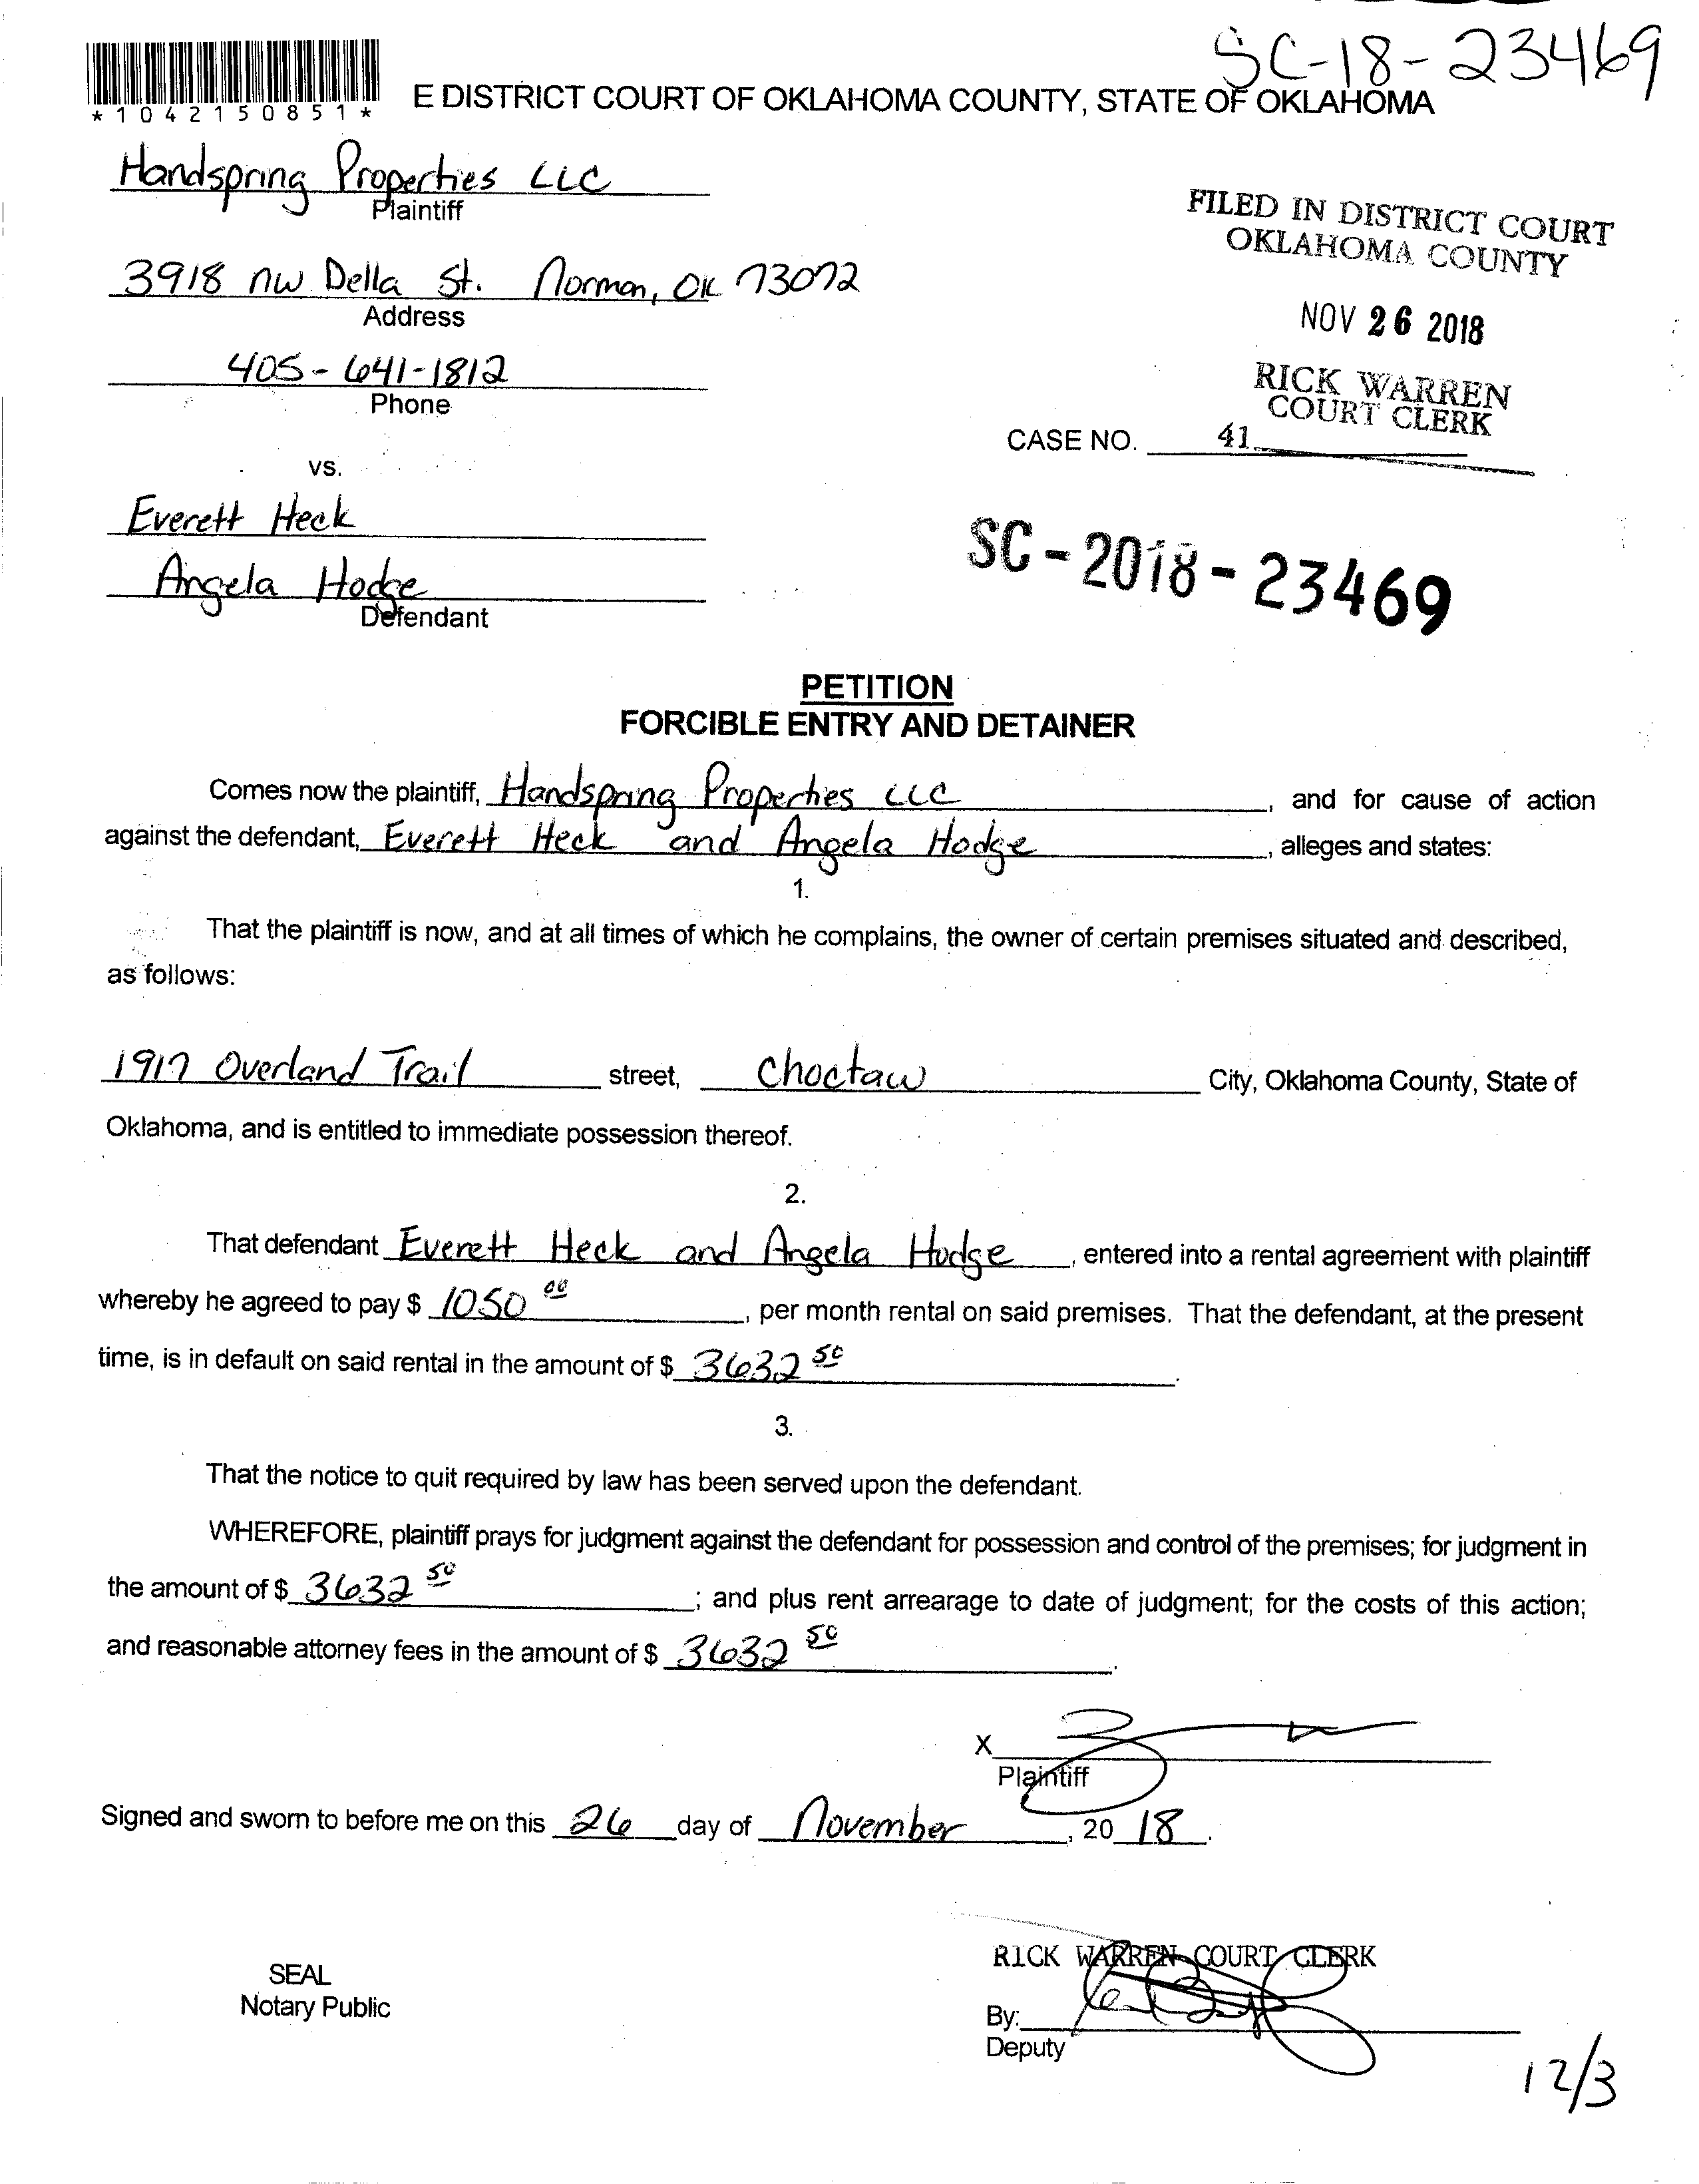 SC-18-23469
*1042150851*
E DISTRICT COURT OF OKLAHOMA COUNTY, STATE OF OKLAHOMA
Handspring Properties LLC
Plaintiff
FILED IN DISTRICT COURT
OKLAHOMA COUNTY
3918 NW Della St. Norman, OK 73072
Address
NOV 26 2018
405-641-1812
Phone
RICK WARREN
COURT CLERK
CASE NO. 41
vs.
Everett Heck
Angela Hodge
Defendant
SC-2018-23469
PETITION
FORCIBLE ENTRY AND DETAINER
Comes now the plaintiff, Handspring Properties LLC, and for cause of action
against the defendant, Everett Heck and Angela Hodge, alleges and states:
1.
That the plaintiff is now, and at all times of which he complains, the owner of certain premises situated and described,
as follows:
1917 Overland Trail street, Choctaw City, Oklahoma County, State of
Oklahoma, and is entitled to immediate possession thereof.
2.
That defendant Everett Heck and Angela Hodge, entered into a rental agreement with plaintiff
whereby he agreed to pay $ 1050 00, per month rental on said premises. That the defendant, at the present
time, is in default on said rental in the amount of $ 3632 50.
3.
That the notice to quit required by law has been served upon the defendant.
WHEREFORE, plaintiff prays for judgment against the defendant for possession and control of the premises; for judgment in
the amount of $ 3632 50; and plus rent arrearage to date of judgment; for the costs of this action;
and reasonable attorney fees in the amount of $ 3632 50.
X
Plaintiff
Signed and sworn to before me on this 26 day of November, 20 18.
RICK WARREN COURT CLERK
SEAL
Notary Public
By:
Deputy
12/3